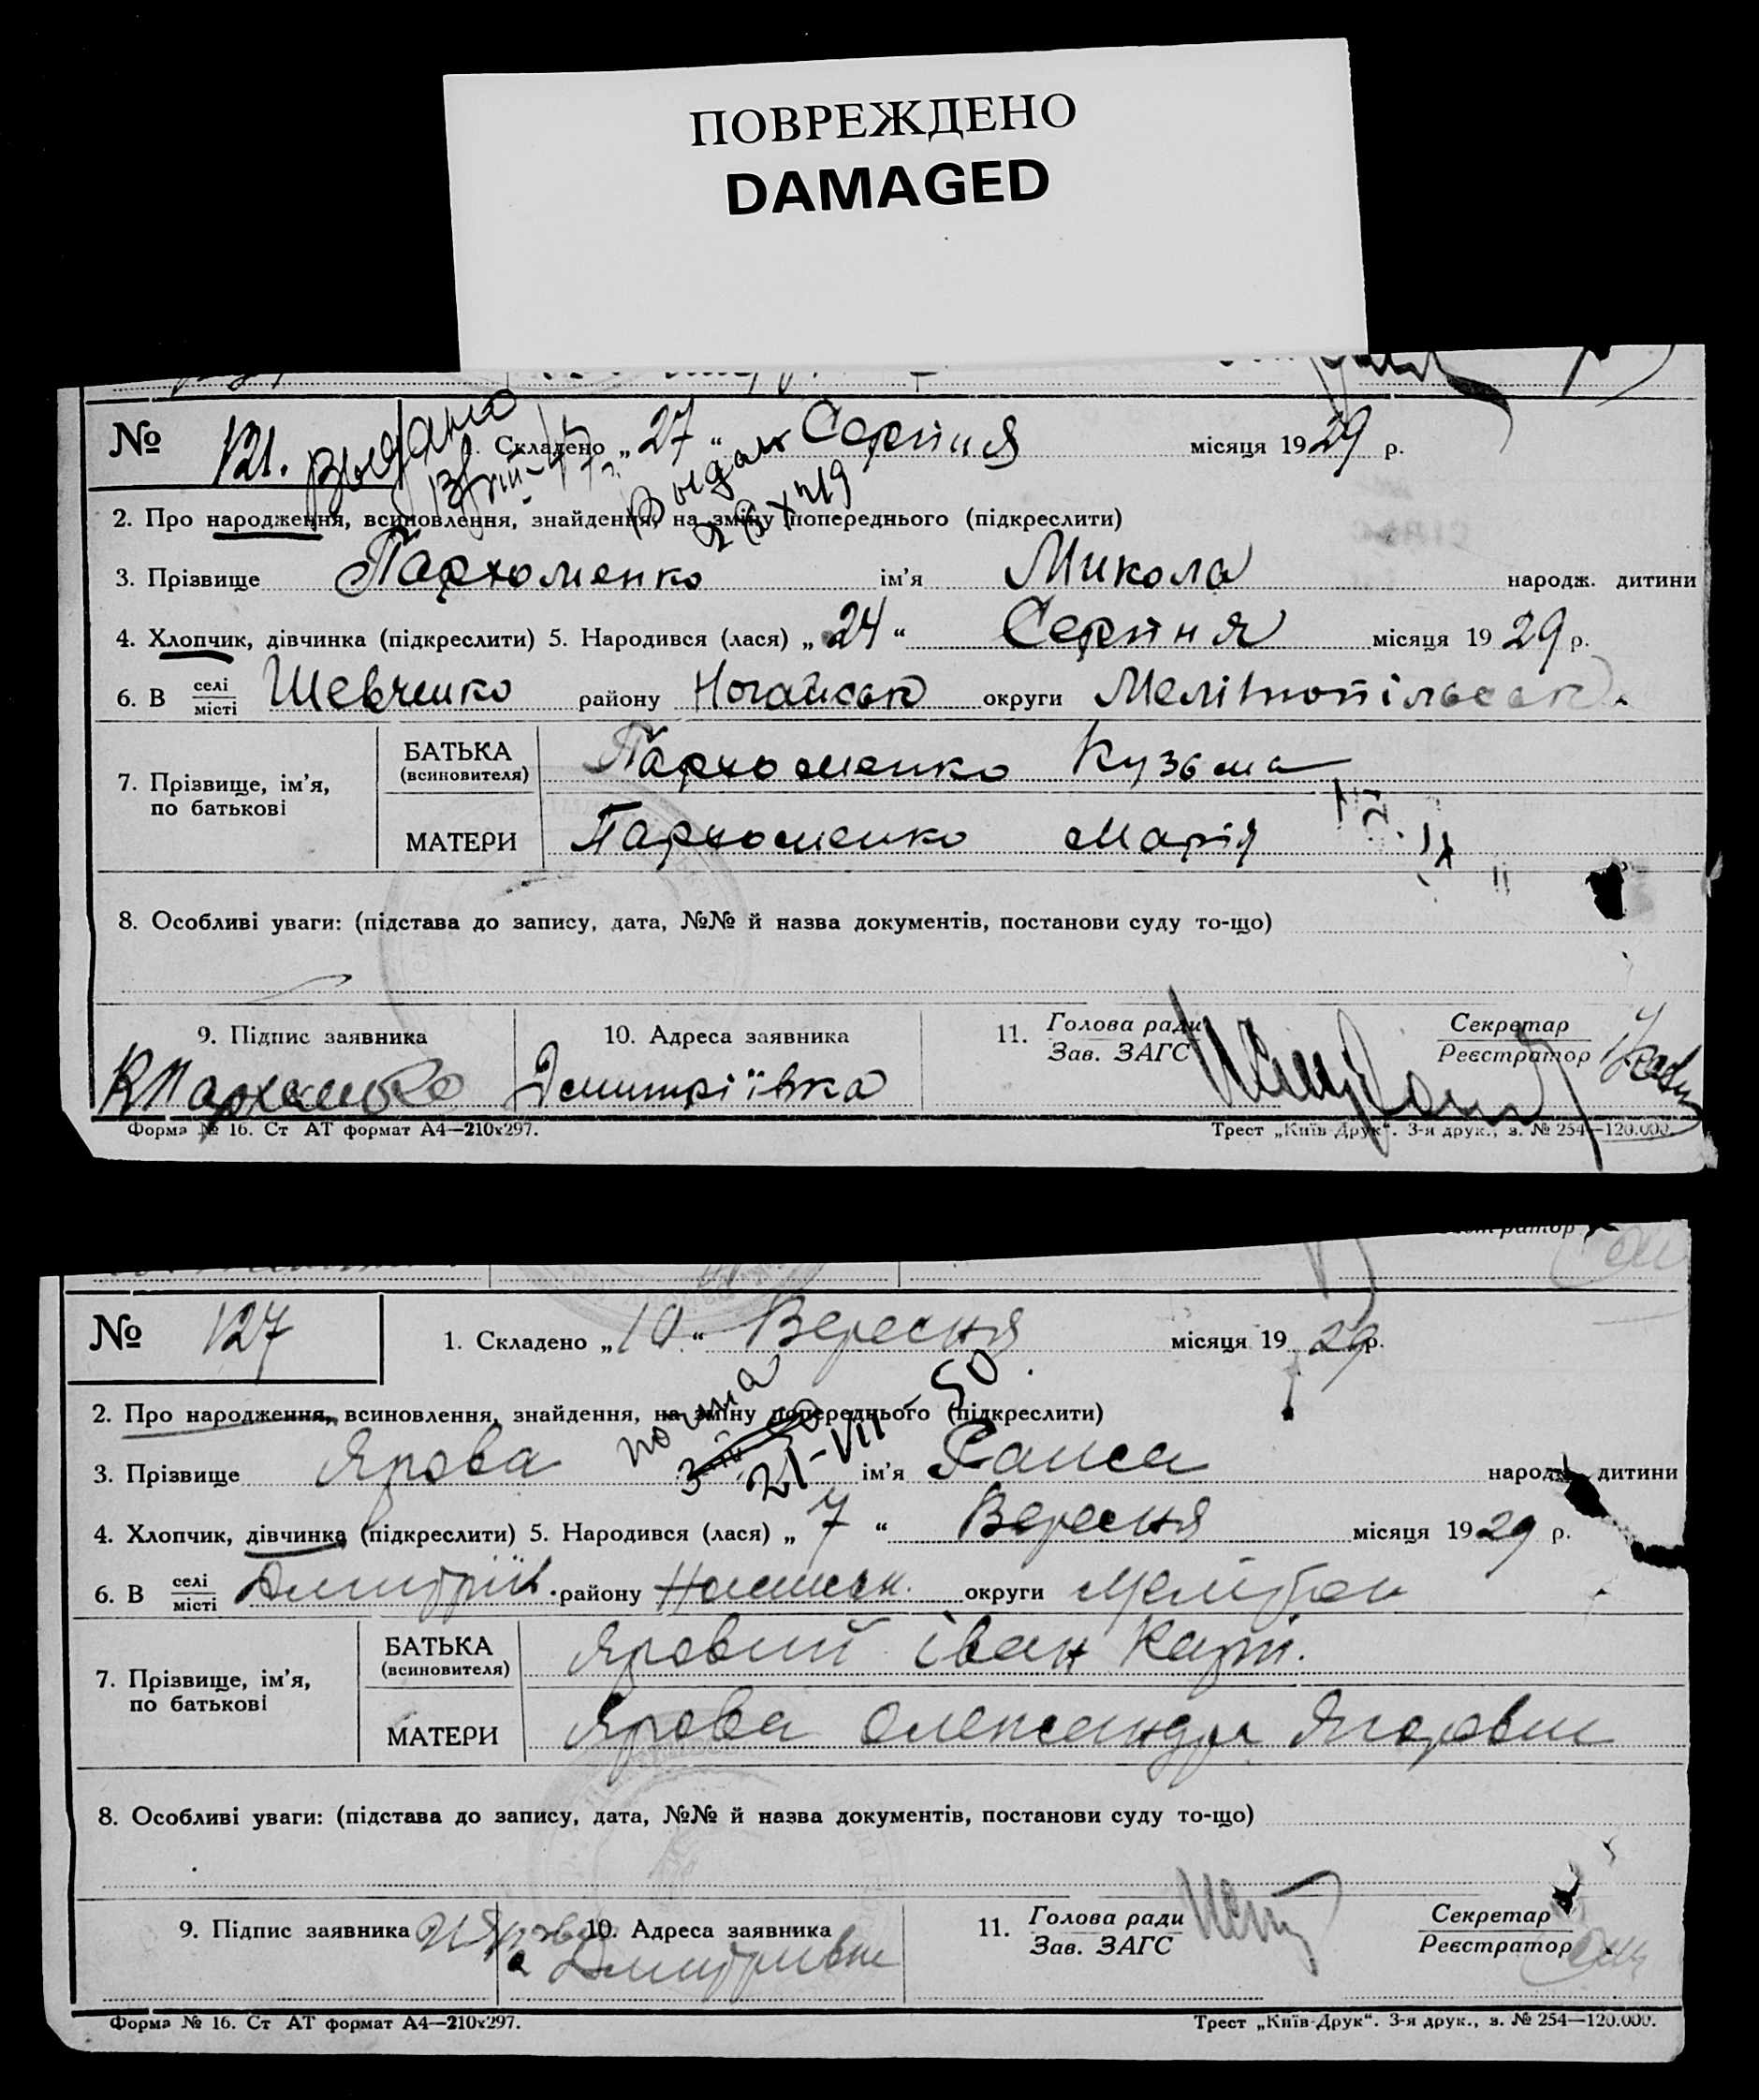 ПОВРЕЖДЕНО
DAMAGED
№ 121. Складено „27“ Серпня місяця 1929 р.
Выдано
2. Про народження, всиновлення, знайдення, на зміну попереднього (підкреслити)
3. Прізвище Пархоменко ім'я Микола народж. дитини
4. Хлопчик, дівчинка (підкреслити) 5. Народився (лася) „24“ Серпня місяця 1929 р.
6. В селі/місті Шевченко району Ногайськ округи Мелітопільськ.
7. Прізвище, ім'я, по батькові
БАТЬКА (всиновителя) Пархоменко Кузьма
МАТЕРИ Пархоменко Марія
8. Особливі уваги: (підстава до запису, дата, №№ й назва документів, постанови суду то-що)
9. Підпис заявника 10. Адреса заявника 11. Голова ради/Зав. ЗАГС Секретар/Реєстратор
К Пархоменко Дмитріївка
Форма № 16. Ст АТ формат А4—210х297. Трест „Київ-Друк“. 3-я друк., з. № 254—120.000
№ 127 1. Складено „10.“ Вересня місяця 1929р.
2. Про народження, всиновлення, знайдення, на зміну попереднього (підкреслити)
21-VII-50.
3. Прізвище Ярова ім'я Раиса народж. дитини
4. Хлопчик, дівчинка (підкреслити) 5. Народився (лася) „7“ Вересня місяця 1929 р.
6. В селі/місті Дмитріїв. району округи
7. Прізвище, ім'я, по батькові
БАТЬКА (всиновителя) Яровий Іван Карп.
МАТЕРИ Ярова Олександра Ягоровн
8. Особливі уваги: (підстава до запису, дата, №№ й назва документів, постанови суду то-що)
9. Підпис заявника 10. Адреса заявника 11. Голова ради/Зав. ЗАГС Секретар/Реєстратор
Форма № 16. Ст АТ формат А4—210х297. Трест „Київ-Друк“. 3-я друк., з. № 254—120.000.